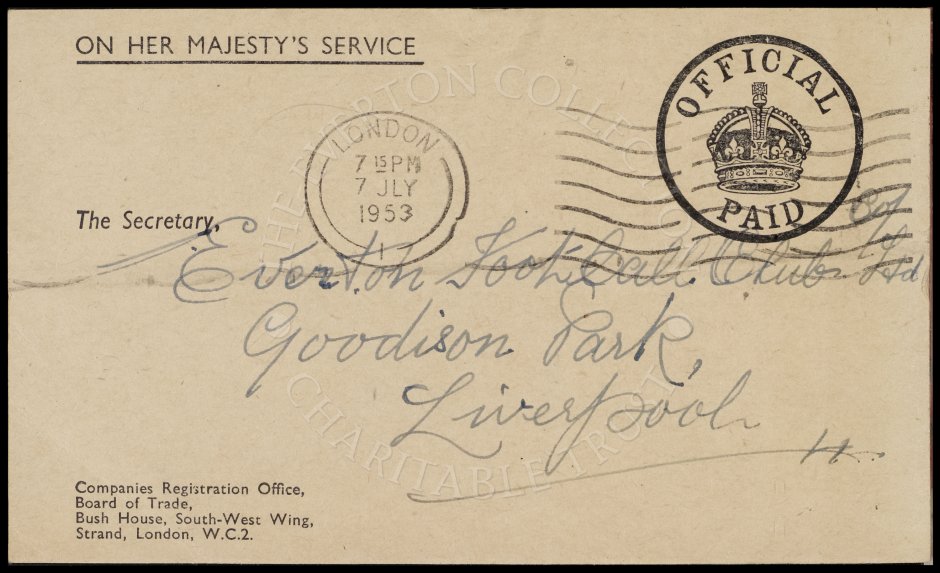 ON HER MAJESTY'S SERVICE
OFFICIAL
PAID
LONDON
7 15 PM
7 JLY
1953
1
The Secretary,
Everton Football Club Ltd
Goodison Park,
Liverpool
4.
Companies Registration Office,
Board of Trade,
Bush House, South-West Wing,
Strand, London, W.C.2.
THE EVERTON COLLECTION
CHARITABLE TRUST